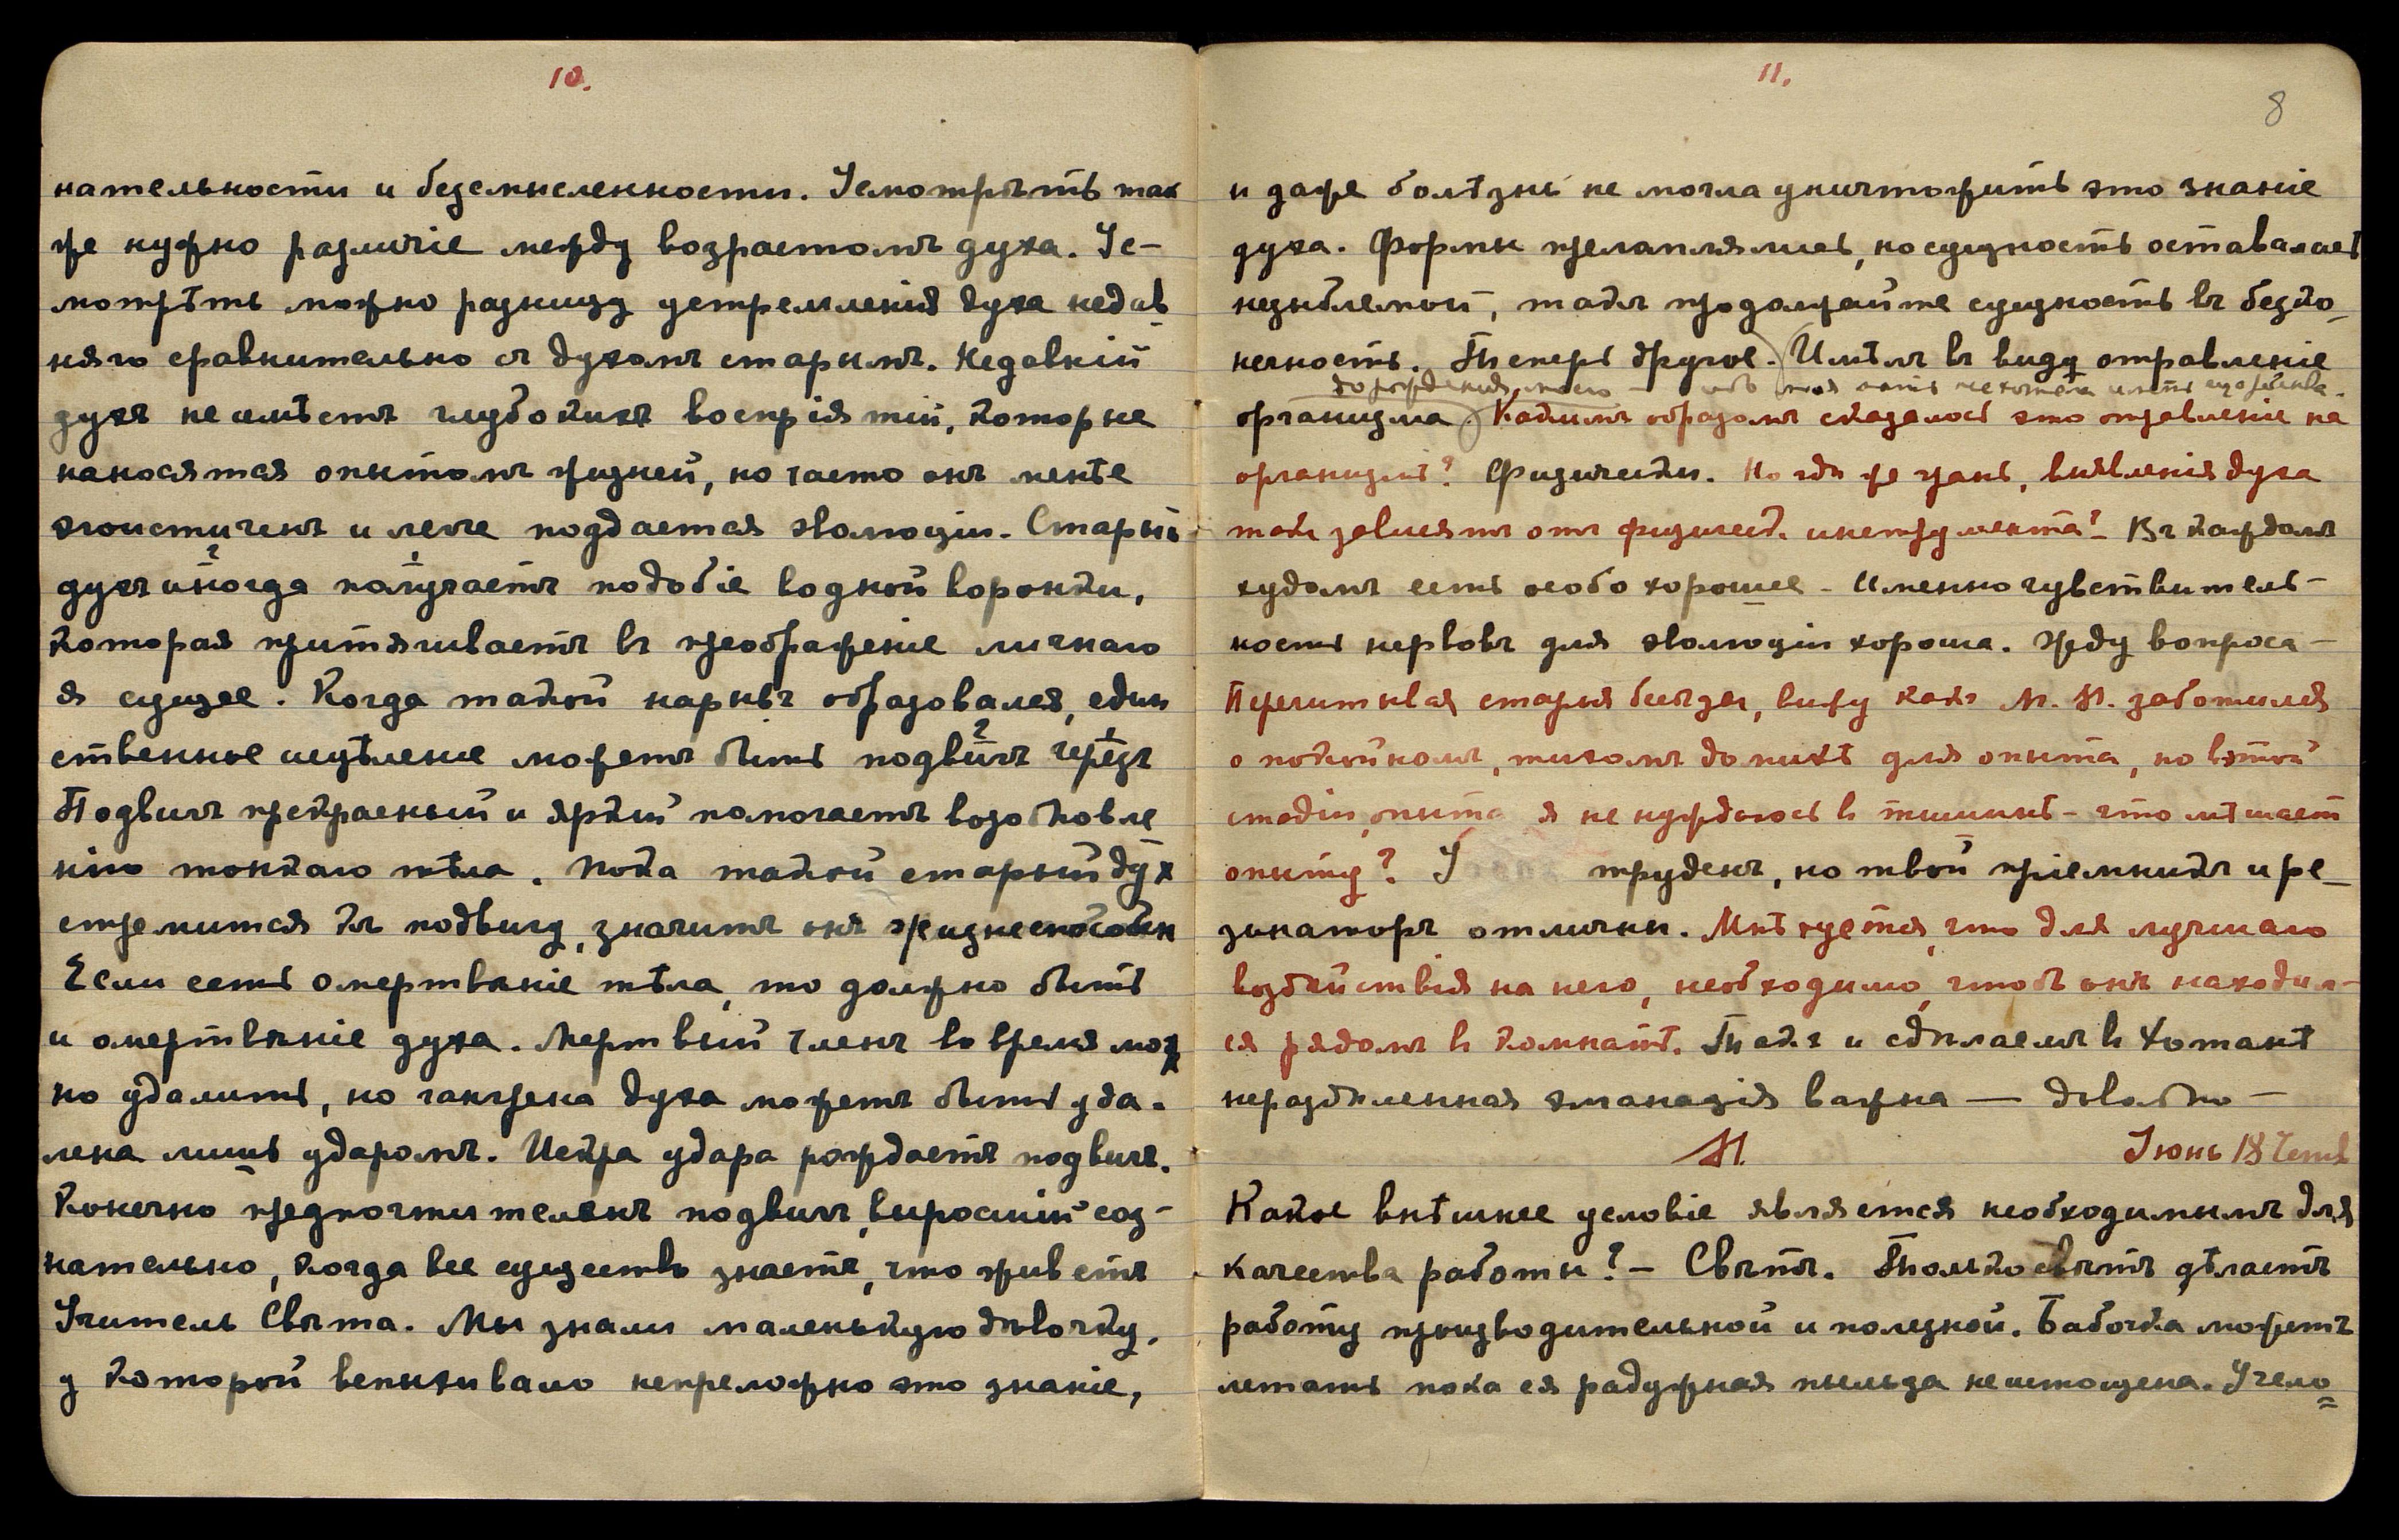 10.
нательности и безсмысленности. Усмотрѣть так
же нужно различіе между возрастомъ духа. Ус-
мотрѣть можно разницу устремленія духа недав
няго сравнительно съ духомъ старымъ. Недавній
духъ не имѣетъ глубокихъ воспріятій, которые
наносятся опытомъ жизней, но часто онъ менѣе
эгоистиченъ и легче поддается эволюціи. Старый
духъ иногда получаетъ подобіе водной воронки,
которая притягиваетъ въ преображеніе личнаго
я сущее. Когда такой нарывъ образовался, един
ственное исцѣленіе можетъ быть подвигъ чрезъ
Подвигъ прекрасный и яркій помогаетъ возобновле
нію тонкаго тѣла. Пока такой старый дух
стремится къ подвигу, значитъ онъ жизнеспособен
Если есть омертвѣніе тѣла, то должно быть
и омертвѣніе духа. Мертвый членъ во время мож
но удалить, но гангрена духа можетъ быть уда-
лена лишь ударомъ. Искра удара рождаетъ подвигъ.
Конечно предпочтителенъ подвигъ, выросшій соз-
нательно, когда все существо знаетъ, что живетъ
Учитель Свѣта. Мы знали маленькую дѣвочку,
у которой вспыхивало непреложно это знаніе,
11.
8
и даже болѣзнь не могла уничтожить это знаніе
духа. Формы преломлялись, но сущность оставалась
незыблемой, такъ продолжайте сущность въ безко-
нечность. Теперь другое. Имѣлъ въ виду отравленіе
до рожденія моего — мать не хотѣла имѣть еще
организма. Какимъ образомъ сказалось это отравленіе на
организмѣ? Физически. Но гдѣ же грань, выявленія духа
такъ зависятъ отъ физическ. инструмента? – Въ каждомъ
худомъ есть особо хорошее – Именно чувствитель-
ность нервовъ для эволюціи хороша. Жду вопроса –
Перечитывая старыя бесѣды, вижу какъ М. М. заботился
о покойномъ, тихомъ домикѣ для опыта, но въ этой
стадіи опыта я не нуждаюсь в тишинѣ – что мѣшает
опыту? У трудень, но твой пріемникъ и ре-
зонаторъ отличны. Мнѣ чуется, что для лучшаго
воздѣйствія на него, необходимо, чтобъ онъ находил-
ся рядомъ в комнатѣ. Такъ и сдѣлаемъ в Хотанѣ
нераздѣленная эманація важна — довольно –
М. Іюнь 18 Четв
Какое внѣшнее условіе является необходимымъ для
качества работы? – Свѣтъ. Только свѣтъ дѣлаетъ
работу производительной и полезной. Бабочка можетъ
летать пока ея радужная пыльца не истощена. У чело=